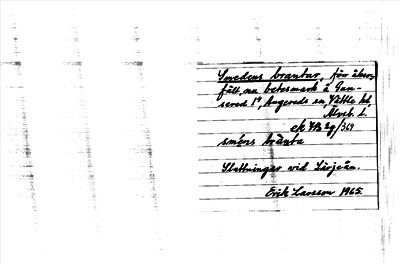 Smedens brantar, förr åker,
fält, nu betesmark å Gun-
nered 1⁴, Angereds sn, Vättle hd,
Älvsb. l.
ek 7B 2g/369
smêns bränta
Sluttningar vid Lärjeån.
Erik Larsson 1965.